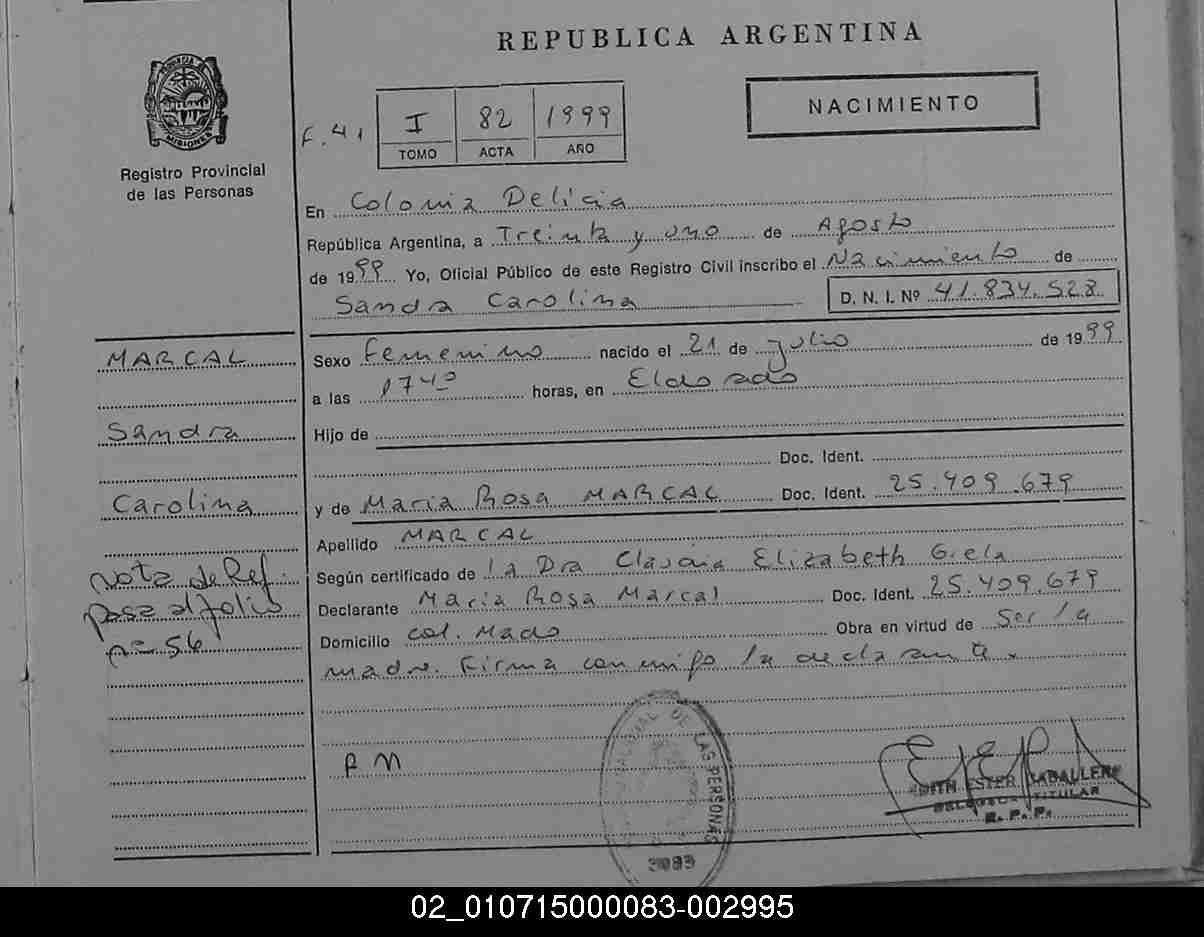 REPUBLICA ARGENTINA
PROVINCIA DE MISIONES
Registro Provincial
de las Personas
NACIMIENTO
F. 41
I 82 1999
TOMO ACTA AÑO
En Colonia Delicia
República Argentina, a Treinta y uno de Agosto
de 1999 Yo, Oficial Público de este Registro Civil inscribo el Nacimiento de
Sandra Carolina D. N. I. Nº 41.834.528
MARCAL
Sandra
Carolina
Nota de Ref.
pasa al folio
nº 56
Sexo Femenino nacido el 21 de Julio de 1999
a las 1740 horas, en Eldorado
Hijo de
Doc. Ident.
y de Maria Rosa MARCAL Doc. Ident. 25.409.679
Apellido MARCAL
Según certificado de la Dra Claudia Elizabeth Giela
Declarante Maria Rosa Marcal Doc. Ident. 25.409.679
Domicilio col. Mado Obra en virtud de Ser la
madre. Firma conmigo la declarante.
R M
DE LAS PERSONAS
EDITH ESTER CABALLERO
DELEGADA TITULAR
R. P. P.
02_010715000083-002995